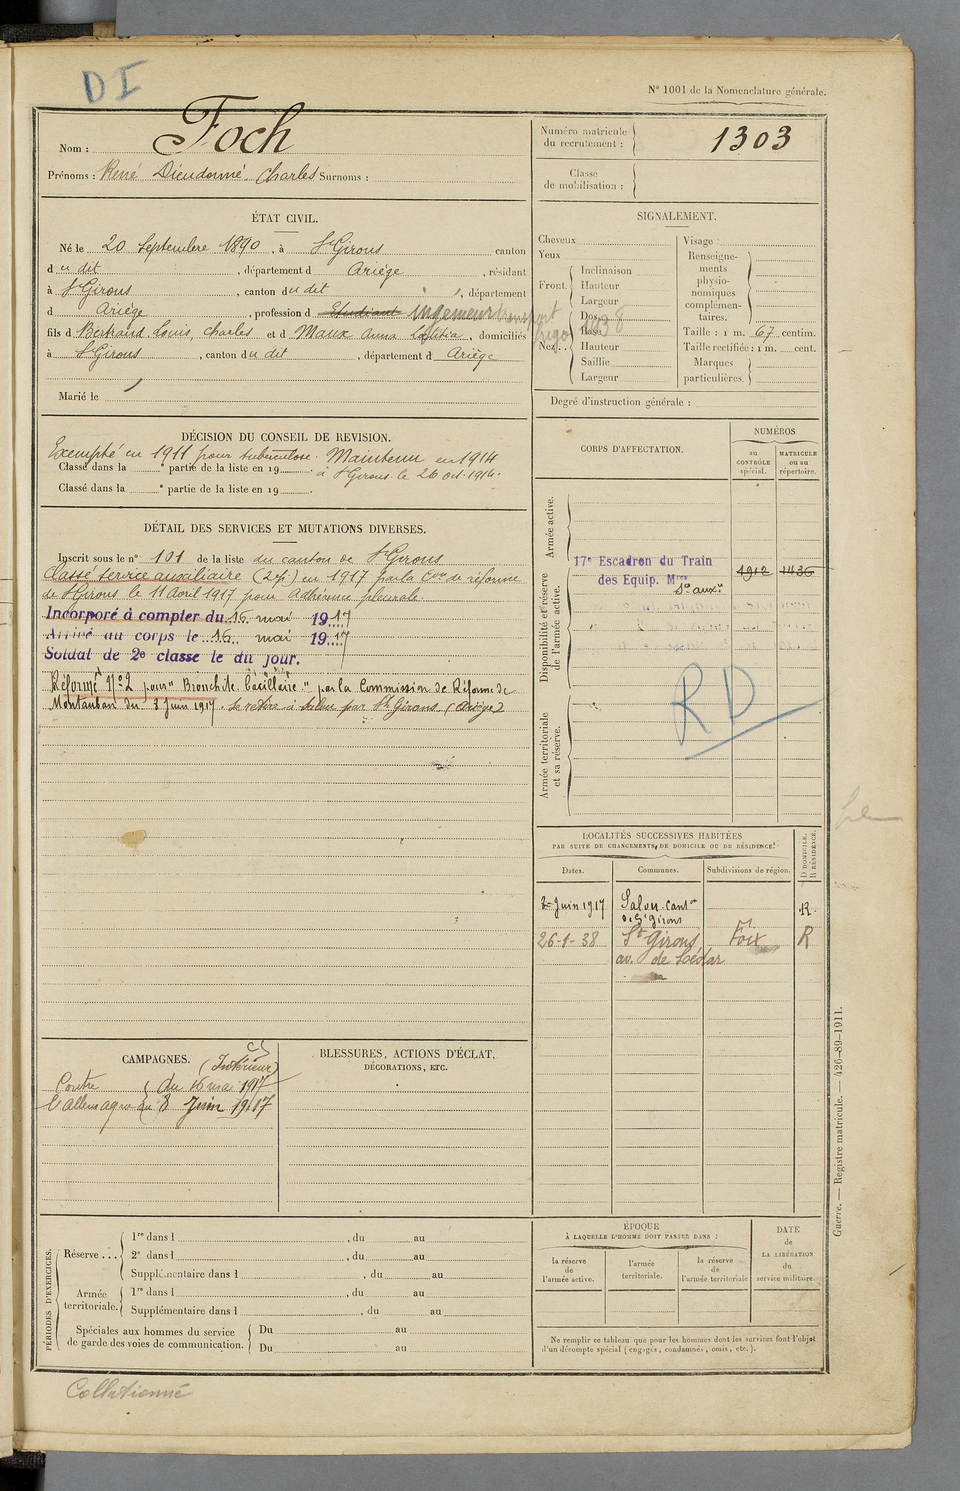 DI
N° 1001 de la Nomenclature générale.
Nom : Foch
Prénoms : René Dieudonné Charles Surnoms :
Numéro matricule du recrutement : 1303
Classe de mobilisation :
ÉTAT CIVIL.
Né le 20 Septembre 1890, à St Girons canton
du dit, département d Ariège, résidant
à St Girons, canton du dit, département
d Ariège, profession d Etudiant ingénieur transport
fils d Bertrand Louis, Charles et d Maux Anna Laetitia, domiciliés
à St Girons, canton du dit, département d Ariège
Marié le
SIGNALEMENT.
Cheveux
Yeux
Front.
Inclinaison
Hauteur
Largeur
Nez..
Dos
Base
Hauteur
Saillie
Largeur
Visage :
Renseignements physionomiques complémentaires.
Taille : 1 m. 67 centim.
Taille rectifiée : 1 m. cent.
Marques particulières.
Degré d'instruction générale :
DÉCISION DU CONSEIL DE REVISION.
Exempté en 1911 pour tuberculose. Maintenu en 1914
à St Girons le 26 oct. 1914.
Classé dans la e partie de la liste en 19 .
Classé dans la e partie de la liste en 19 .
DÉTAIL DES SERVICES ET MUTATIONS DIVERSES.
Inscrit sous le n° 101 de la liste du canton de St Girons
Classé service auxiliaire (2e p.) en 1917 par la Con de réforme
de St Girons le 11 avril 1917 pour Adhérence pleurale.
Incorporé à compter du 16 mai 1917
Arrivé au corps le 16 mai 1917
Soldat de 2e classe le dit jour.
Réformé N°2 pour "Bronchite bacillaire" par la Commission de Réforme de
Montauban du 8 Juin 1917. Se retire à Salau par St Girons (Ariège)
CORPS D'AFFECTATION.
NUMÉROS
au CONTRÔLE spécial.
MATRICULE ou au répertoire.
Armée active.
Disponibilité et réserve de l'armée active.
Armée territoriale et sa réserve.
17e Escadron du Train
des Equip. Mres
So auxre
1912
1436
RD
LOCALITÉS SUCCESSIVES HABITÉES
PAR SUITE DE CHANGEMENTS DE DOMICILE OU DE RÉSIDENCE.
D DOMICILE.
R RÉSIDENCE.
Dates.
Communes.
Subdivisions de région.
Juin 1917 Salau. Cant on de St Girons R
26-1-38 St Girons Foix R
av. de
CAMPAGNES.
(Intérieur)
Contre du 16 mai 1917
l'Allemagne au 8 Juin 1917
BLESSURES, ACTIONS D'ÉCLAT,
DÉCORATIONS, ETC.
PÉRIODES D'EXERCICES.
Réserve ...
1re dans l , du au
2e dans l , du au
Supplémentaire dans l , du au
Armée territoriale.
1re dans l , du au
Supplémentaire dans l , du au
Spéciales aux hommes du service de garde des voies de communication.
Du au
Du au
ÉPOQUE
À LAQUELLE L'HOMME DOIT PASSER DANS :
la réserve de l'armée active.
l'armée territoriale.
la réserve de l'armée territoriale
DATE de LA LIBÉRATION du service militaire.
Ne remplir ce tableau que pour les hommes dont les services font l'objet
d'un décompte spécial (engagés, condamnés, omis, etc.).
Guerre. — Registre matricule. — 426-89-1911.
Collationné